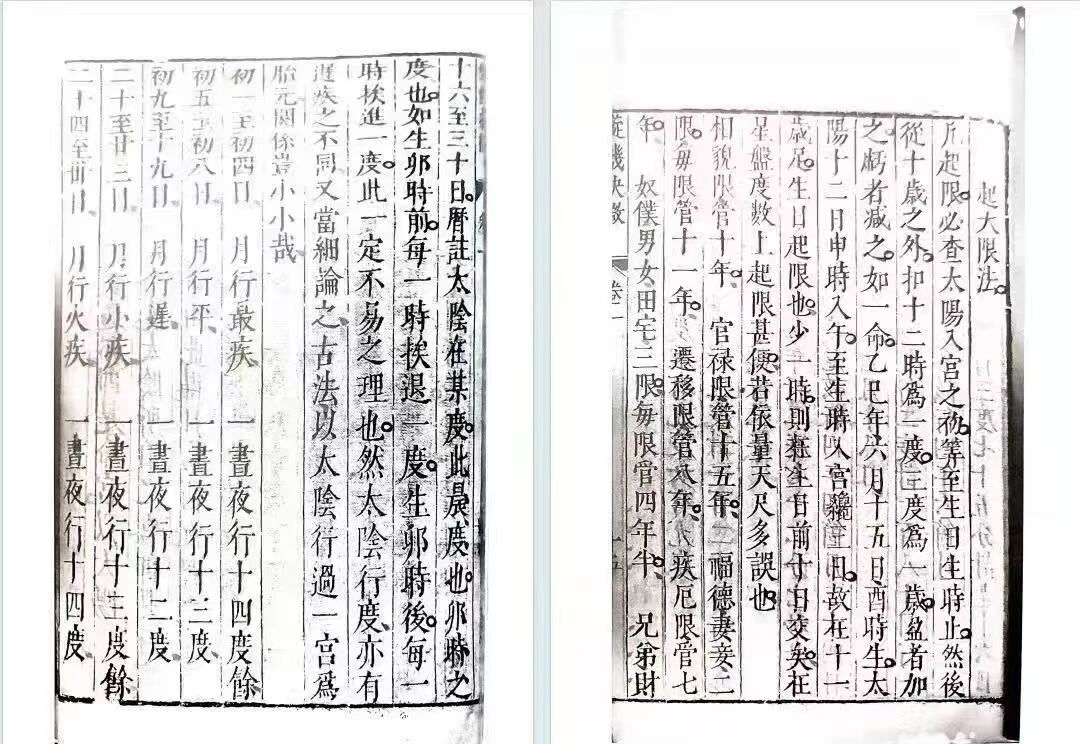 起大限法。
凡起限。必查太陽入宮之初。筭至生日生時止。然後
從十歲之外。扣十二時為一度。三度為一歲。盈者加
之。虧者減之。如一命乙巳年六月十五日酉時生。太
陽十二日申時入午。至生時入宮纔三日。故在十一
歲足。生日起限也。少一時。則在生日前十日交矣。在
星盤度數上起限甚便。若依量天尺多誤也
相貌限管十年。 官祿限管十五年。 福德妻妾二
限。每限管十一年。 遷移限管八年。 疾厄限管七
年。 奴僕男女田宅三限。每限管四年半。 兄弟財
卷二
十六至三十日。曆註太陰在某度。此晨度也。卯時之
度也。如生卯時前。每一時挨退一度。生卯時後。每一
時挨進一度。此一定不易之理也。然太陰行度。亦有
遲疾之不同。又當細論之。古法以太陰行過一宮為
胎元。關係豈小小哉
初一至初四日 月行最疾 一晝夜行十四度餘
初五至初八日 月行平 一晝夜行十三度
初九至十九日 月行遲 一晝夜行十二度
二十至廿三日 月行小疾 一晝夜行十三度餘
二十四至卅日 月行大疾 一晝夜行十四度